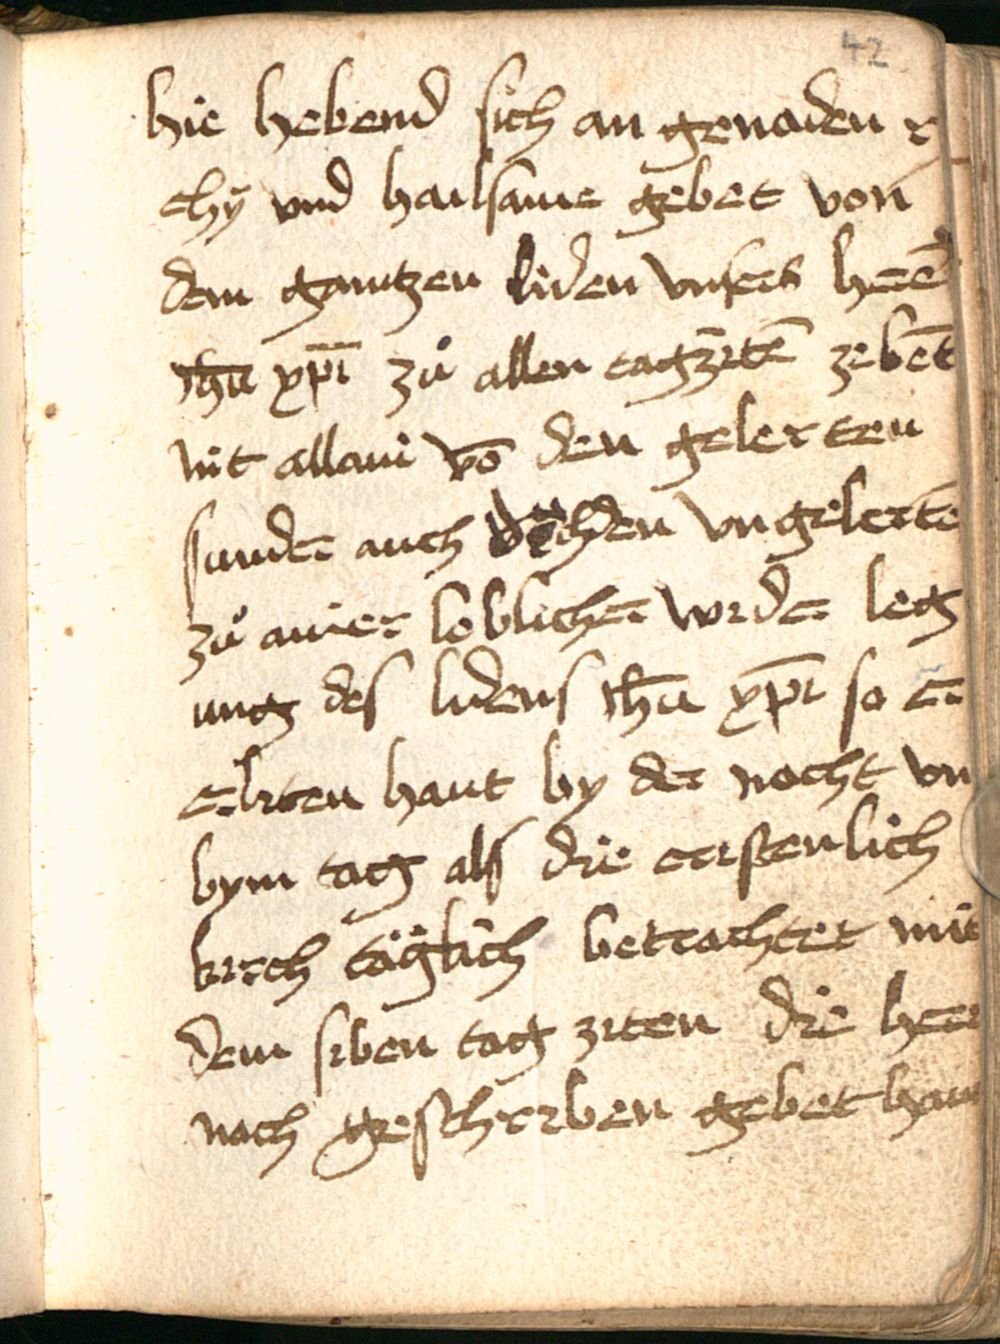 42
hie hebend sich an genaden r
chÿ vnd hailsame gebet von
dem gantzen liden vnsers heré
ihū xp̄i zů allen tagzitē zebēt
nit allain vō den gelerten
sunder auch den vngelertē
zů ainer loblichen wirder leg
ung des lidens ihū xp̄i so er
erliten haut by der nacht vn
bym tag als die cristenlich
kirch täglich betrachtet mit
dem siben tag ziten die hee
nach geschriben gebet hau